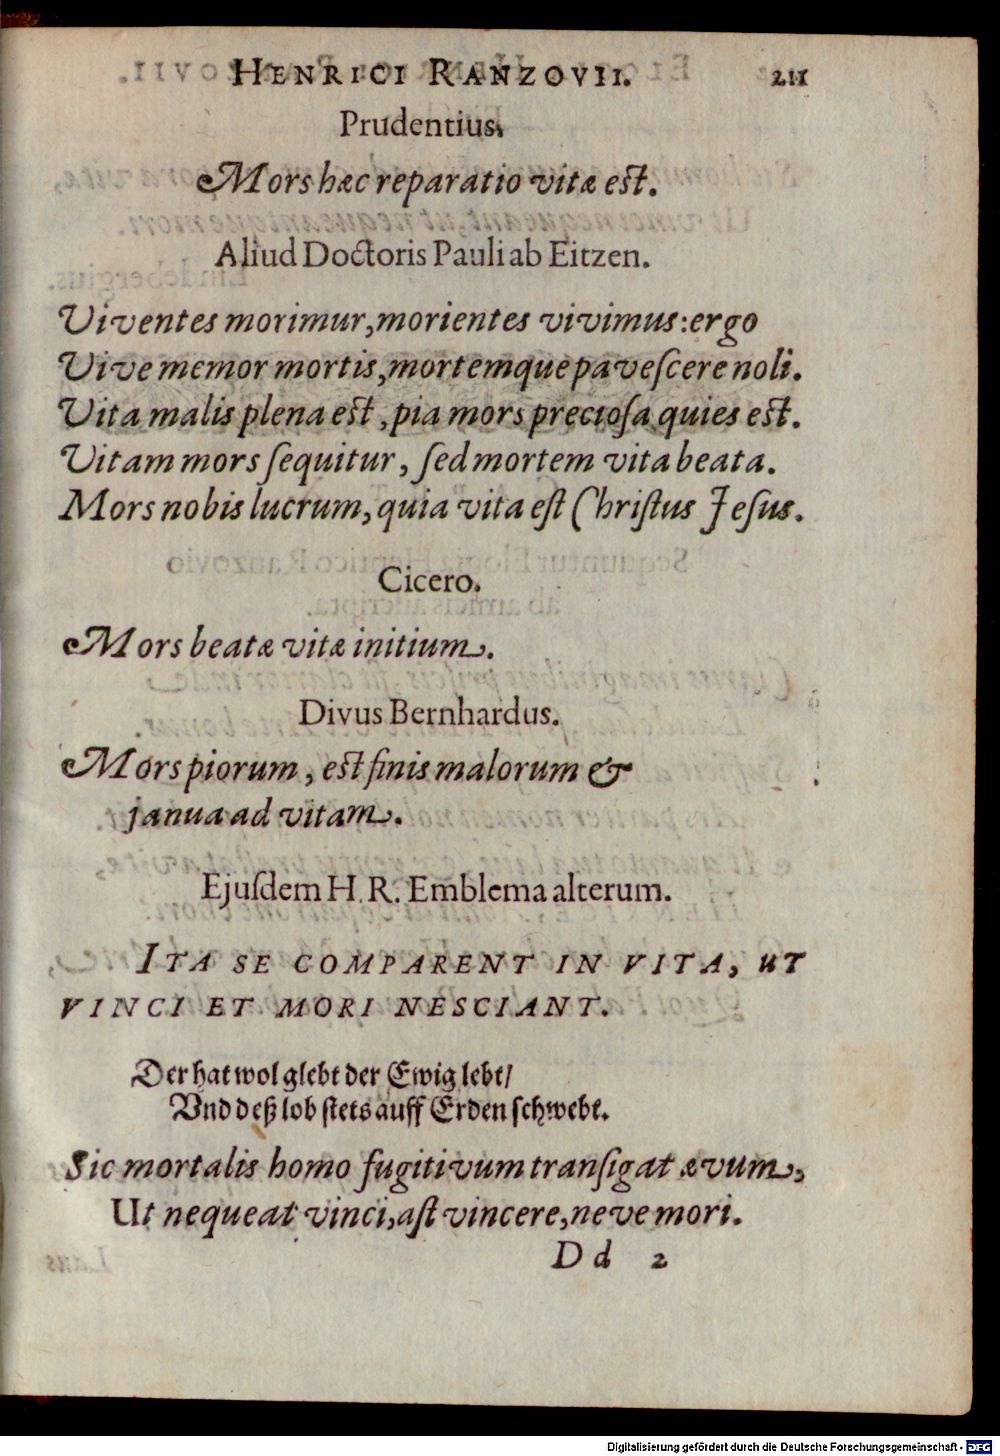 HENRICI RANZOVII. 211
Prudentius.
Mors hæc reparatio vitæ est.
Aliud Doctoris Pauli ab Eitzen.
Viventes morimur, morientes vivimus: ergo
Vive memor mortis, mortemque paveſcere noli.
Vita malis plena est, pia mors precioſa quies est.
Vitam mors ſequitur, ſed mortem vita beata.
Mors nobis lucrum, quia vita eſt Chriſtus Jeſus.
Cicero.
Mors beatæ vitæ initium.
Divus Bernhardus.
Mors piorum, est finis malorum &
janua ad vitam.
Ejuſdem H. R. Emblema alterum.
ITA SE COMPARENT IN VITA, UT
VINCI ET MORI NESCIANT.
Der hat wol glebt der Ewig lebt/
Vnd deß lob ſtets auff Erden ſchwebt.
Sic mortalis homo fugitivum tranſigat ævum,
Ut nequeat vinci, aſt vincere, neve mori.
Dd 2
Digitalisierung gefördert durch die Deutsche Forschungsgemeinschaft - DFG